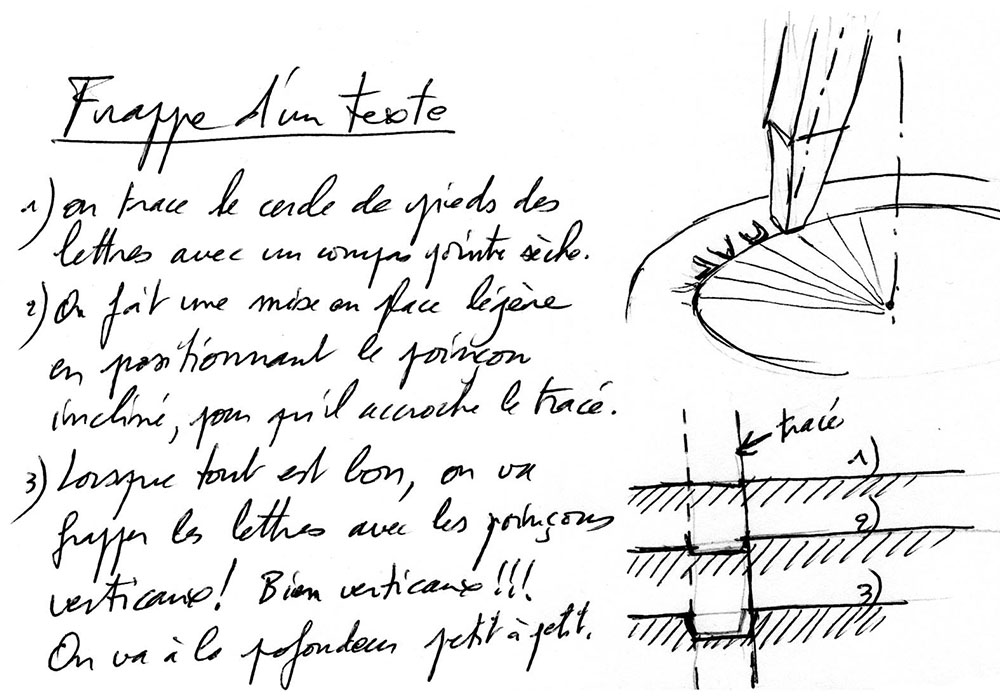 Frappe d'un texte
1) on trace le cercle de pieds des
lettres avec un compas pointe sèche.
2) On fait une mise en place légère
en positionnant le poinçon
incliné, pour qu'il accroche le tracé.
3) Lorsque tout est bon, on va
frapper les lettres avec les poinçons
verticaux! Bien verticaux!!!
On va à la profondeur petit à petit.
tracé
1)
2)
3)